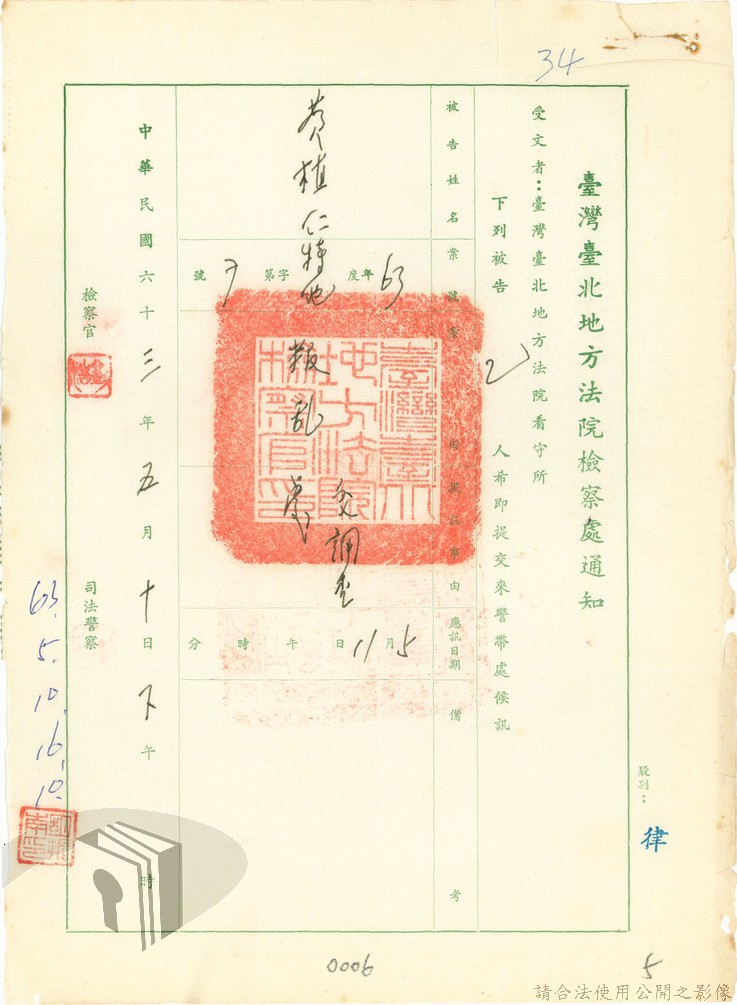 34
臺灣臺北地方法院檢察處通知
受文者：臺灣臺北地方法院看守所
下列被告 乙 人希即提交來警帶處候訊
被告姓名
案號
案由
提訊事由
應訊日期
備考
植仁
63年度
字第
號
叛乱
調查
5月11日 午 時 分
中華民國六十三年五月十日下午 時
檢察官
司法警察
63.5.10.16.10.
臺灣臺北地方法院檢察官印
股別：
律
0006
5
請合法使用公開之影像